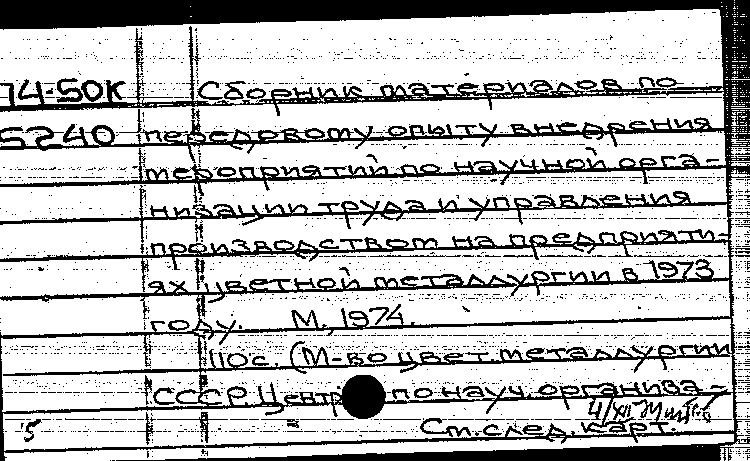 74-50К Сборник материалов по
5240 передовому опыту внедрения
мероприятий по научной орга-
низации труда и управления
производством на предприяти-
ях цветной металлургии в 1973
году. М., 1974.
110с. (М-во цвет. металлургии
СССР. Центр по науч. организа-
4/XII
5 См. след. карт.